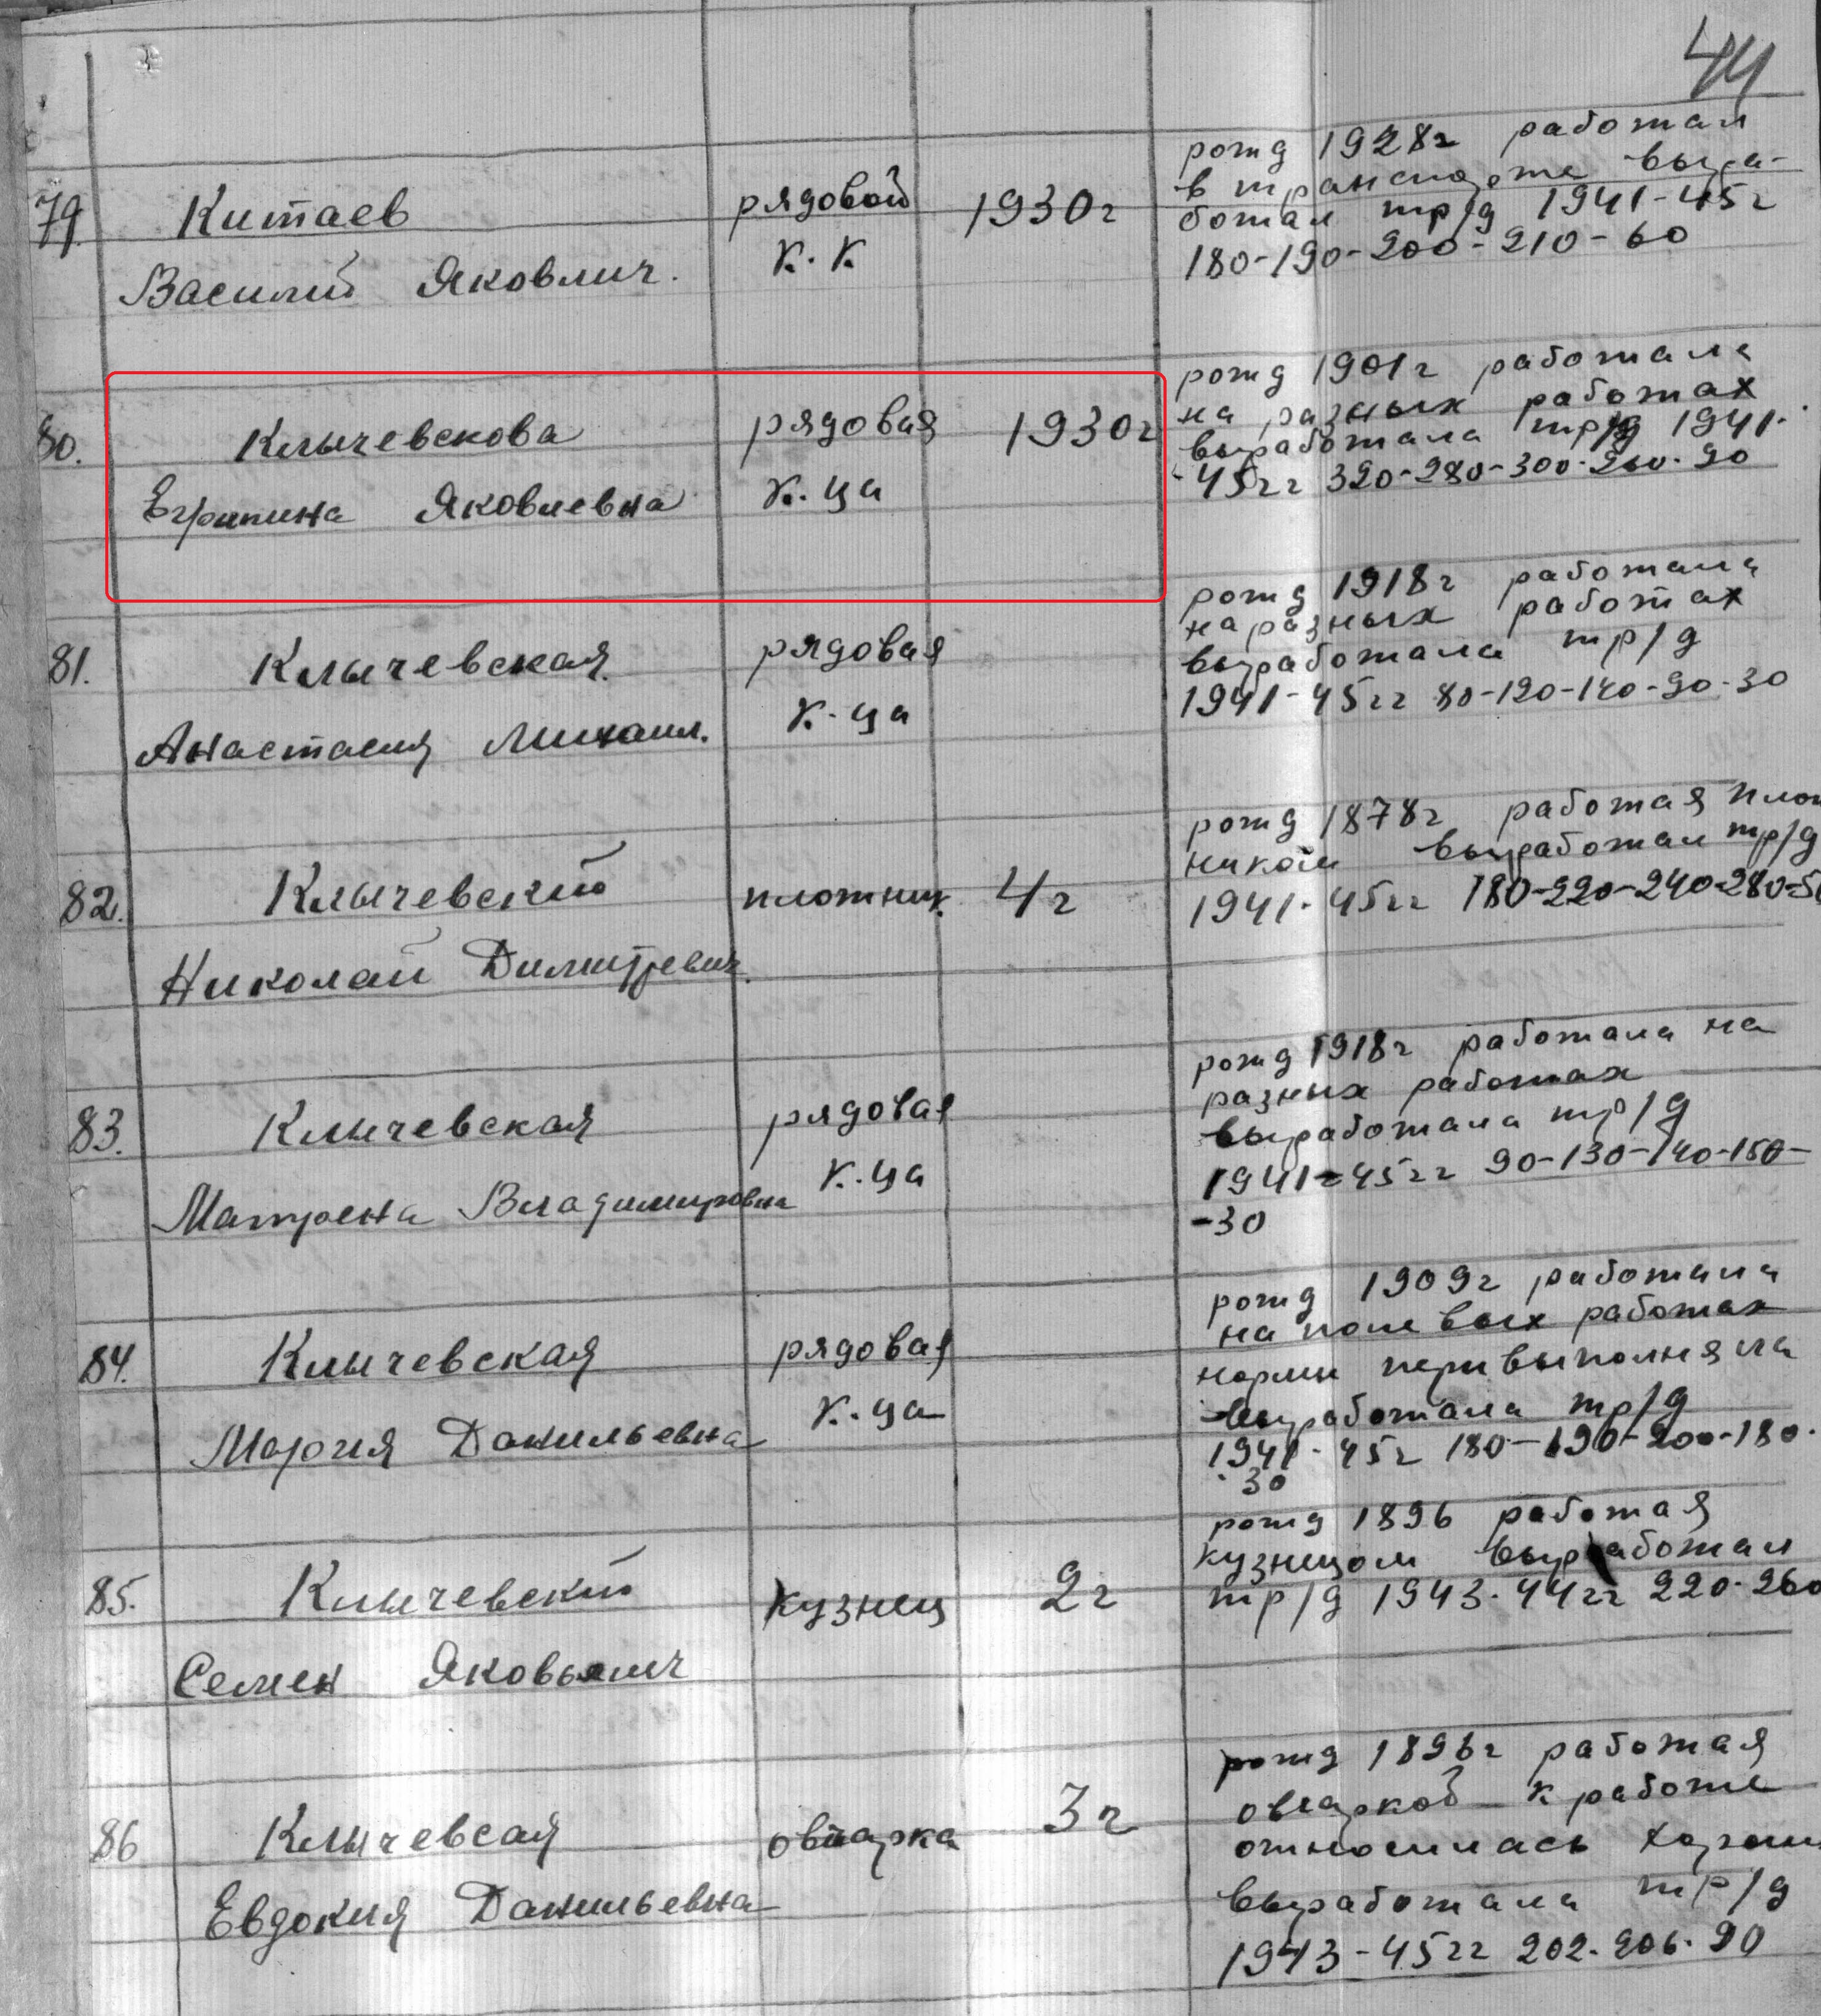 44
79. Китаев рядовой 1930г рожд 1928г работал
Василий Яковлич. к.к в транспорте выра-
ботал тр/д 1941-45г
180-190-200-210-60
80. Клычевскова рядовая 1930г рожд 1901г работала
Егрипина Яковлевна к.ца на разных работах
выработала тр/д 1941-
-45гг 320-280-300-260-90
81. Клычевская рядовая рожд 1918г работала
Анастасия Михаил. к-ца на разных работах
выработала тр/д
1941-45гг 80-120-140-90-30
82. Клычевский плотник 4г рожд 1878г работая
Николай Димитревич. ником выработал тр/д
1941-45гг 180-220-240-280-
83. Клычевская рядовая рожд 1918г работала на
Матрена Владимировна к.ца разных работах
выработала тр/д
1941-45гг 90-130-140-150-
-30
84. Клычевская рядовая рожд 1909г работала
Мария Данильевна к.ца на полевых работах
нормы перевыполняла
выработала тр/д
1941-45г 180-190-200-180-
-30
85. Клычевский кузнец 2г рожд 1896 работая
Семен Яковьлич кузнецом выработал
тр/д 1943-44гг 220-260
86 Клычевсая овчарка 3г рожд 1896г работая
Евдокия Данильевна овчаркой к работе
относилась
выработала тр/д
1943-45гг 202-206-90